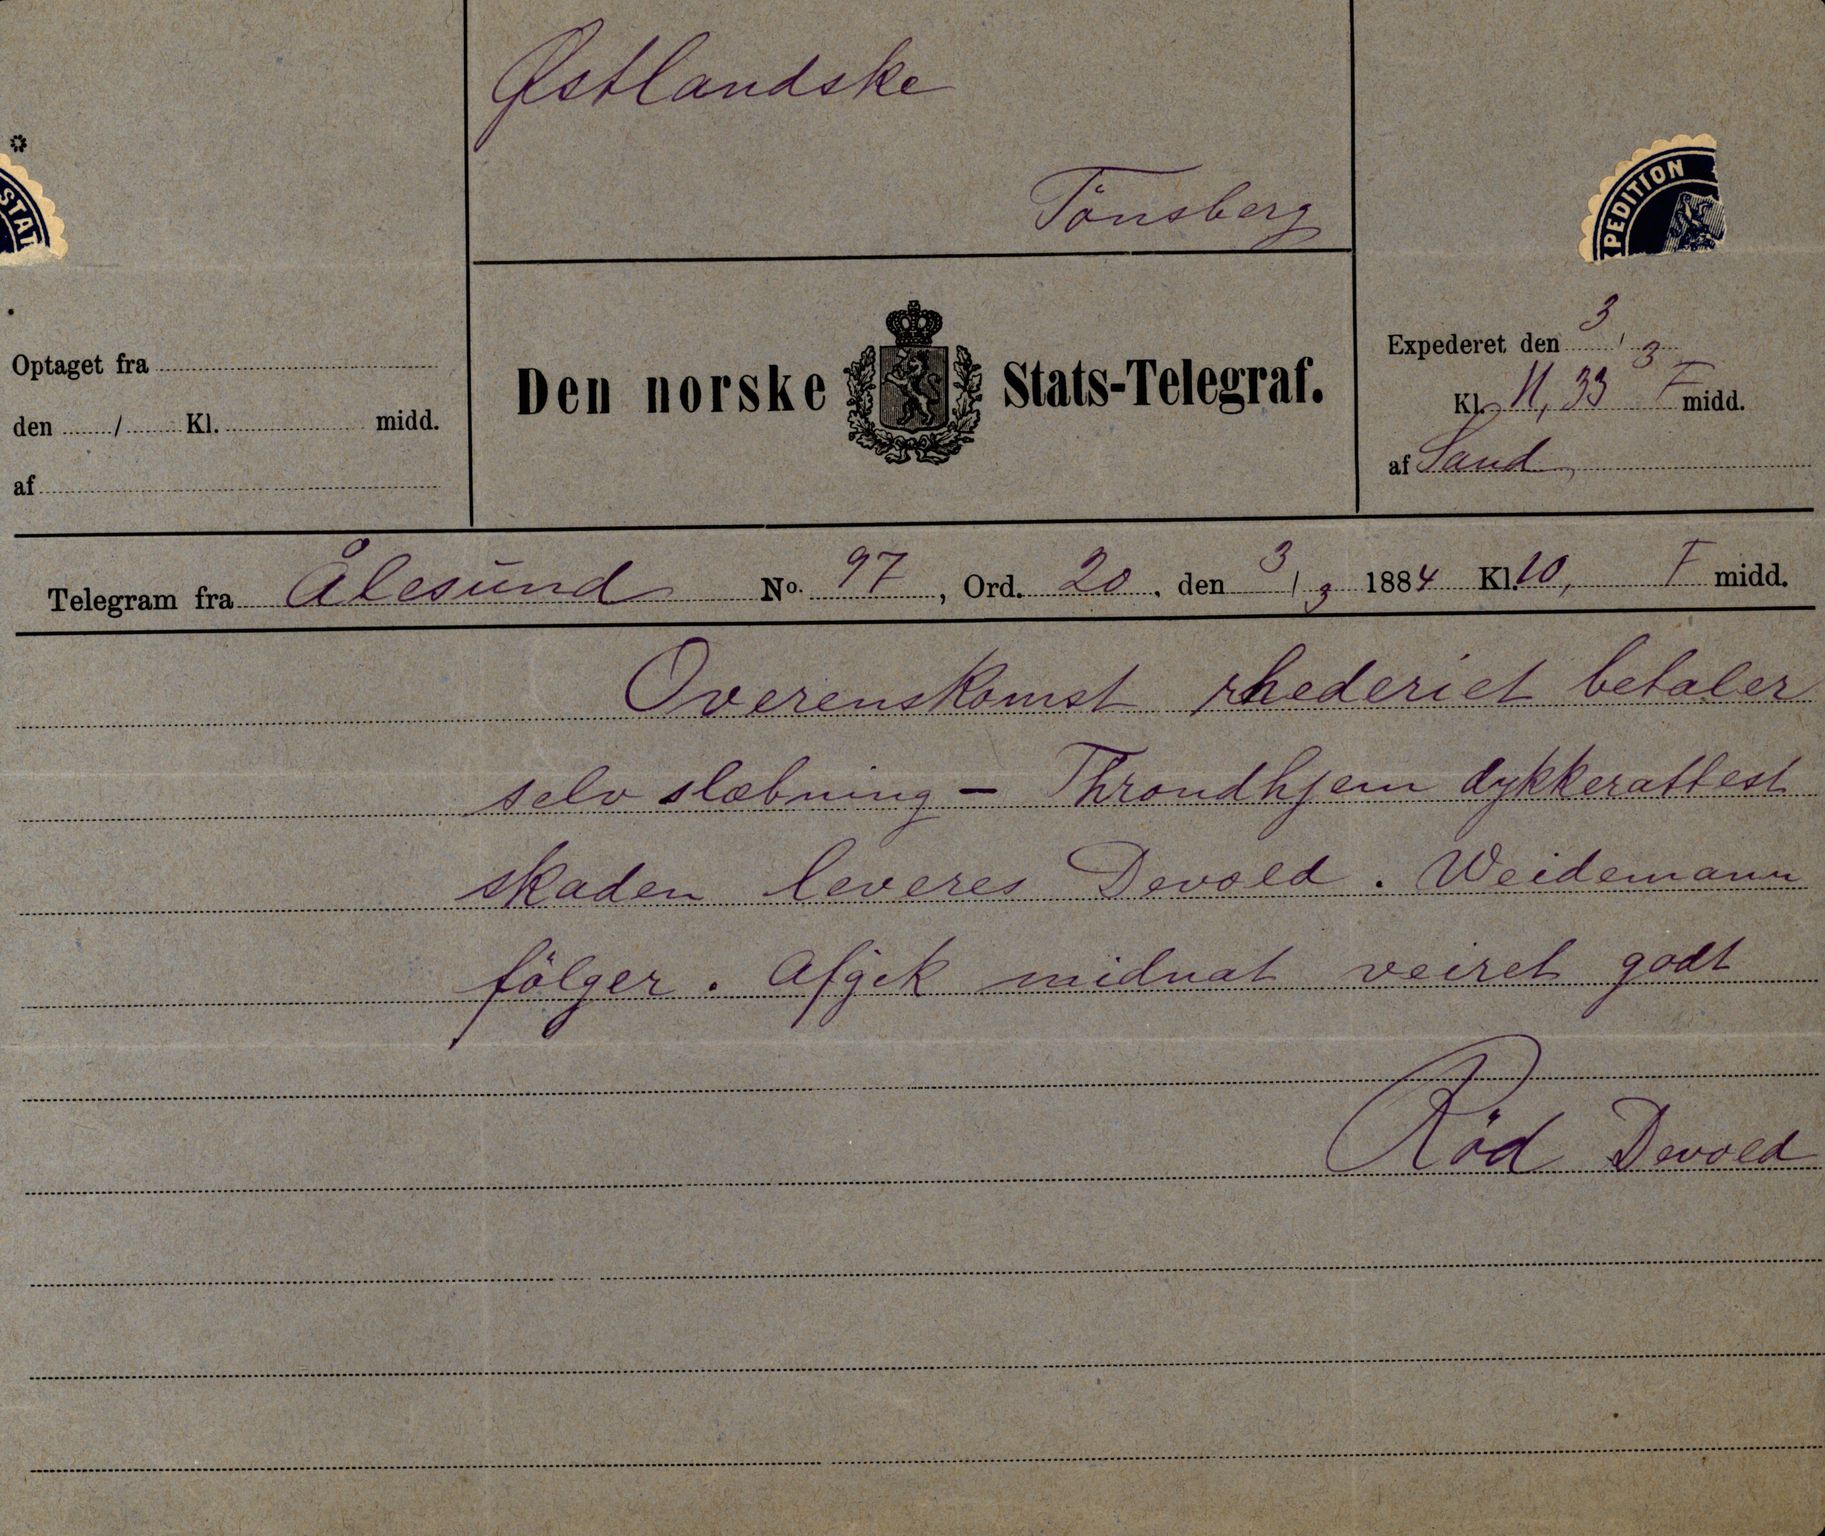 Østlandske
Tönsberg
STAT
PEDITION
Optaget fra
den / Kl. midd.
af
Den norske Stats-Telegraf.
Expederet den 3/3
Kl. 11,33 F midd.
af Sand
Telegram fra Ålesund No. 97, Ord. 20, den 3/3 1884 Kl. 10, F midd.
Overenskomst rhederiet betaler
selv slæbning - Throndhjem dykkerattest
skaden leveres Devold. Weidemann
fölger. Afgik midnat veiret godt
Röd Devold